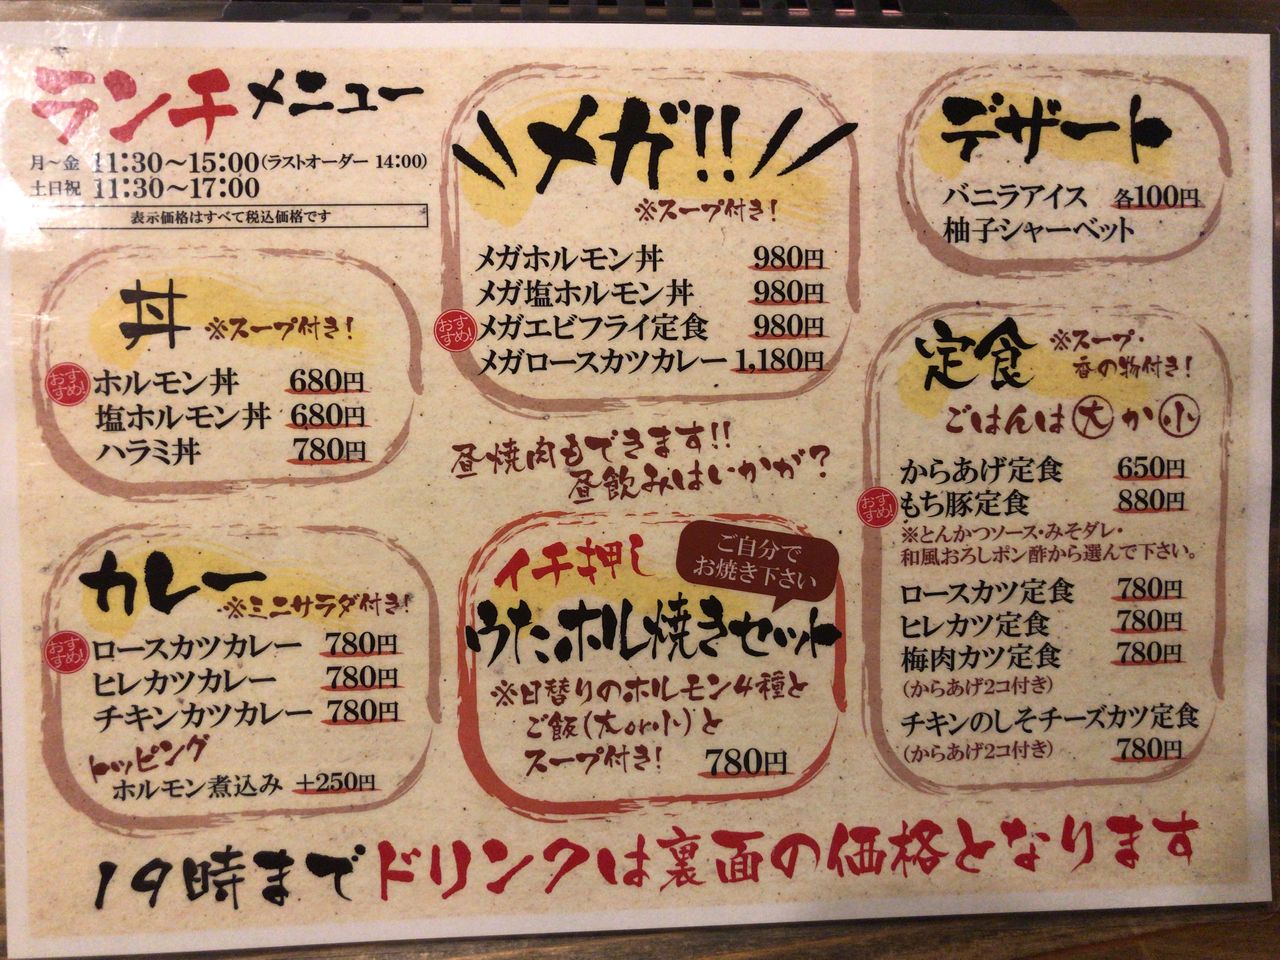 ランチメニュー
月～金 11:30～15:00(ラストオーダー 14:00)
土日祝 11:30～17:00
表示価格はすべて税込価格です
丼 ※スープ付き!
おすすめ! ホルモン丼 680円
塩ホルモン丼 680円
ハラミ丼 780円
カレー
※ミニサラダ付き!
おすすめ! ロースカツカレー 780円
ヒレカツカレー 780円
チキンカツカレー 780円
トッピング
ホルモン煮込み +250円
メガ!!
※スープ付き!
メガホルモン丼 980円
メガ塩ホルモン丼 980円
おすすめ! メガエビフライ定食 980円
メガロースカツカレー 1,180円
昼焼肉もできます!!
昼飲みはいかが?
イチ押し
ご自分で
お焼き下さい
うたホル焼きセット
※日替りのホルモン4種と
ご飯(大or小)と
スープ付き! 780円
デザート
バニラアイス 各100円
柚子シャーベット
定食 ※スープ・
香の物付き!
ごはんは大か小
からあげ定食 650円
おすすめ! もち豚定食 880円
※とんかつソース・みそダレ・
和風おろしポン酢から選んで下さい。
ロースカツ定食 780円
ヒレカツ定食 780円
梅肉カツ定食 780円
(からあげ2コ付き)
チキンのしそチーズカツ定食
(からあげ2コ付き) 780円
19時までドリンクは裏面の価格となります